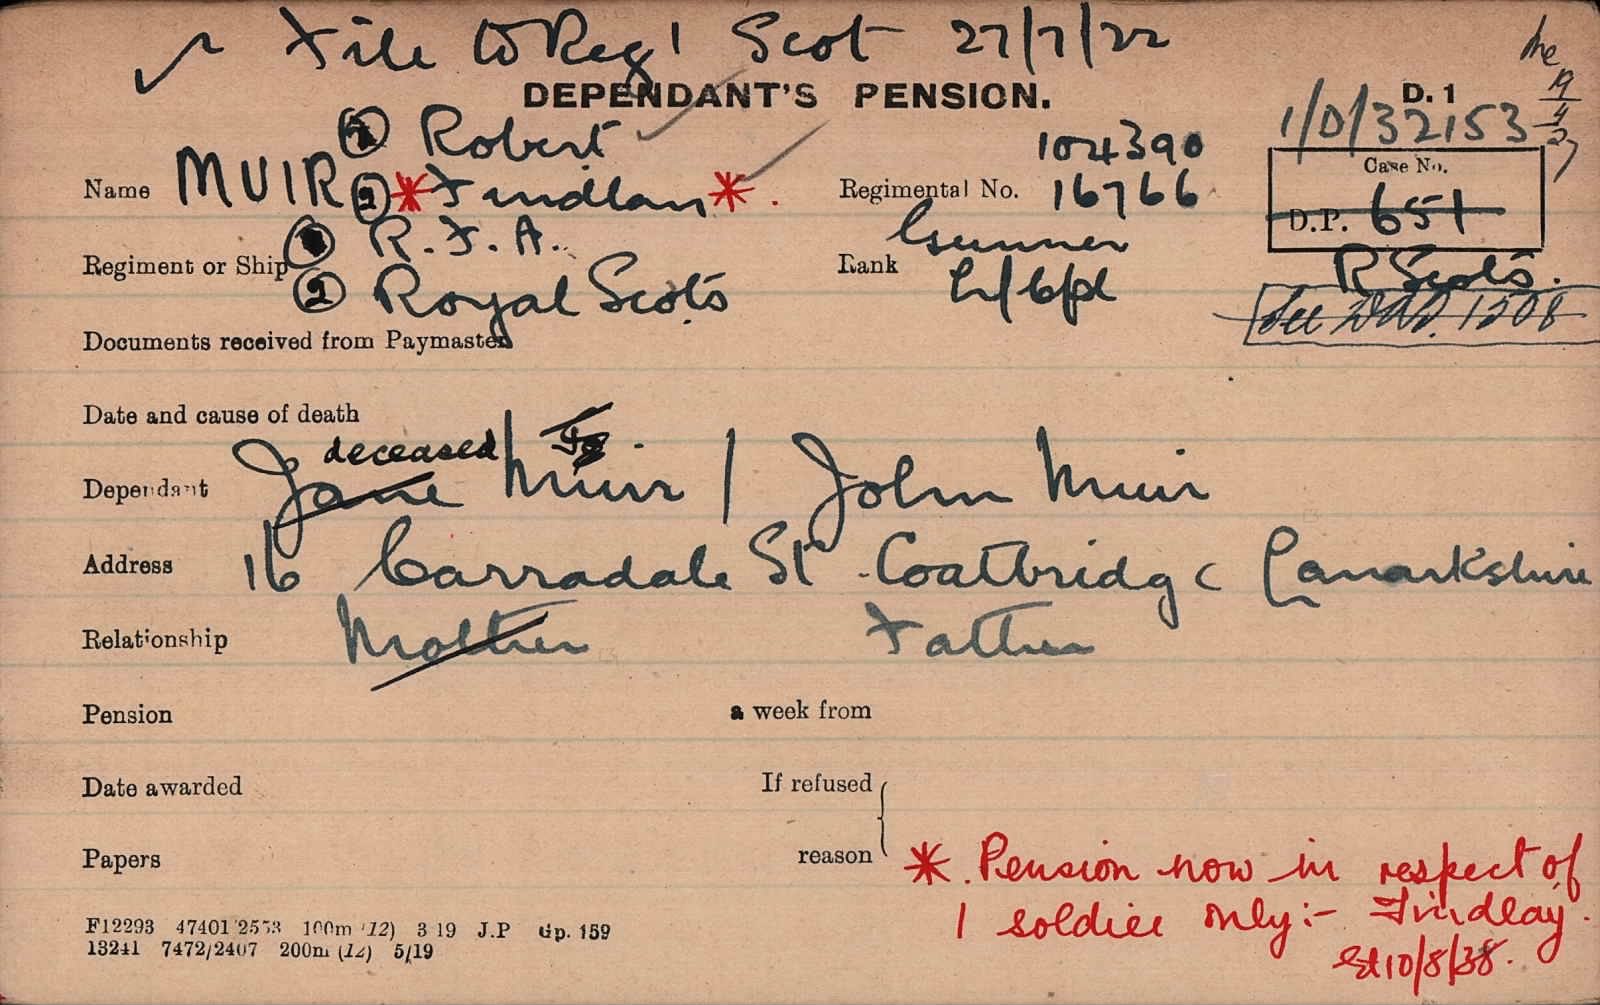 File to Reg'l Scot 27/7/22
DEPENDANT'S PENSION.
D. 1
1/D/32153
① Robert
104390
Name MUIR ② * Findlay * .
Regimental No. 16766
Case No.
D.P. 651
R Scots.
① R.F.A.
Gunner
Regiment or Ship
Rank
② Royal Scots
L/Cpl
See 1208
Documents received from Paymaster
Date and cause of death
deceased
Dependant Jane Muir / John Muir
Address 16 Carradale St. Coatbridge Lanarkshire
Relationship Mother Father
Pension a week from
Date awarded If refused
Papers reason
* . Pension now in respect of
1 soldier only:- Findlay.
10/8/38.
F12293 47401/2553 100m (12) 3 19 J.P Gp. 159
13241 7472/2407 200m (12) 5/19